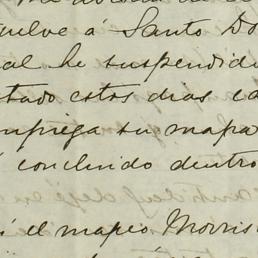 uelve á Santo Do
al he suspendid
tado estos dias ca
mpiega su mapa
concluido dentro
i el mapeo Morris